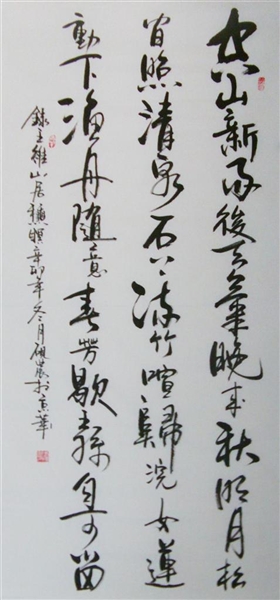 空山新雨後天氣晚來秋明月松
間照清泉石上流竹喧歸浣女蓮
動下漁舟隨意春芳歇王孫自可留
錄王維山居龝暝辛卯年冬月硯農於京華